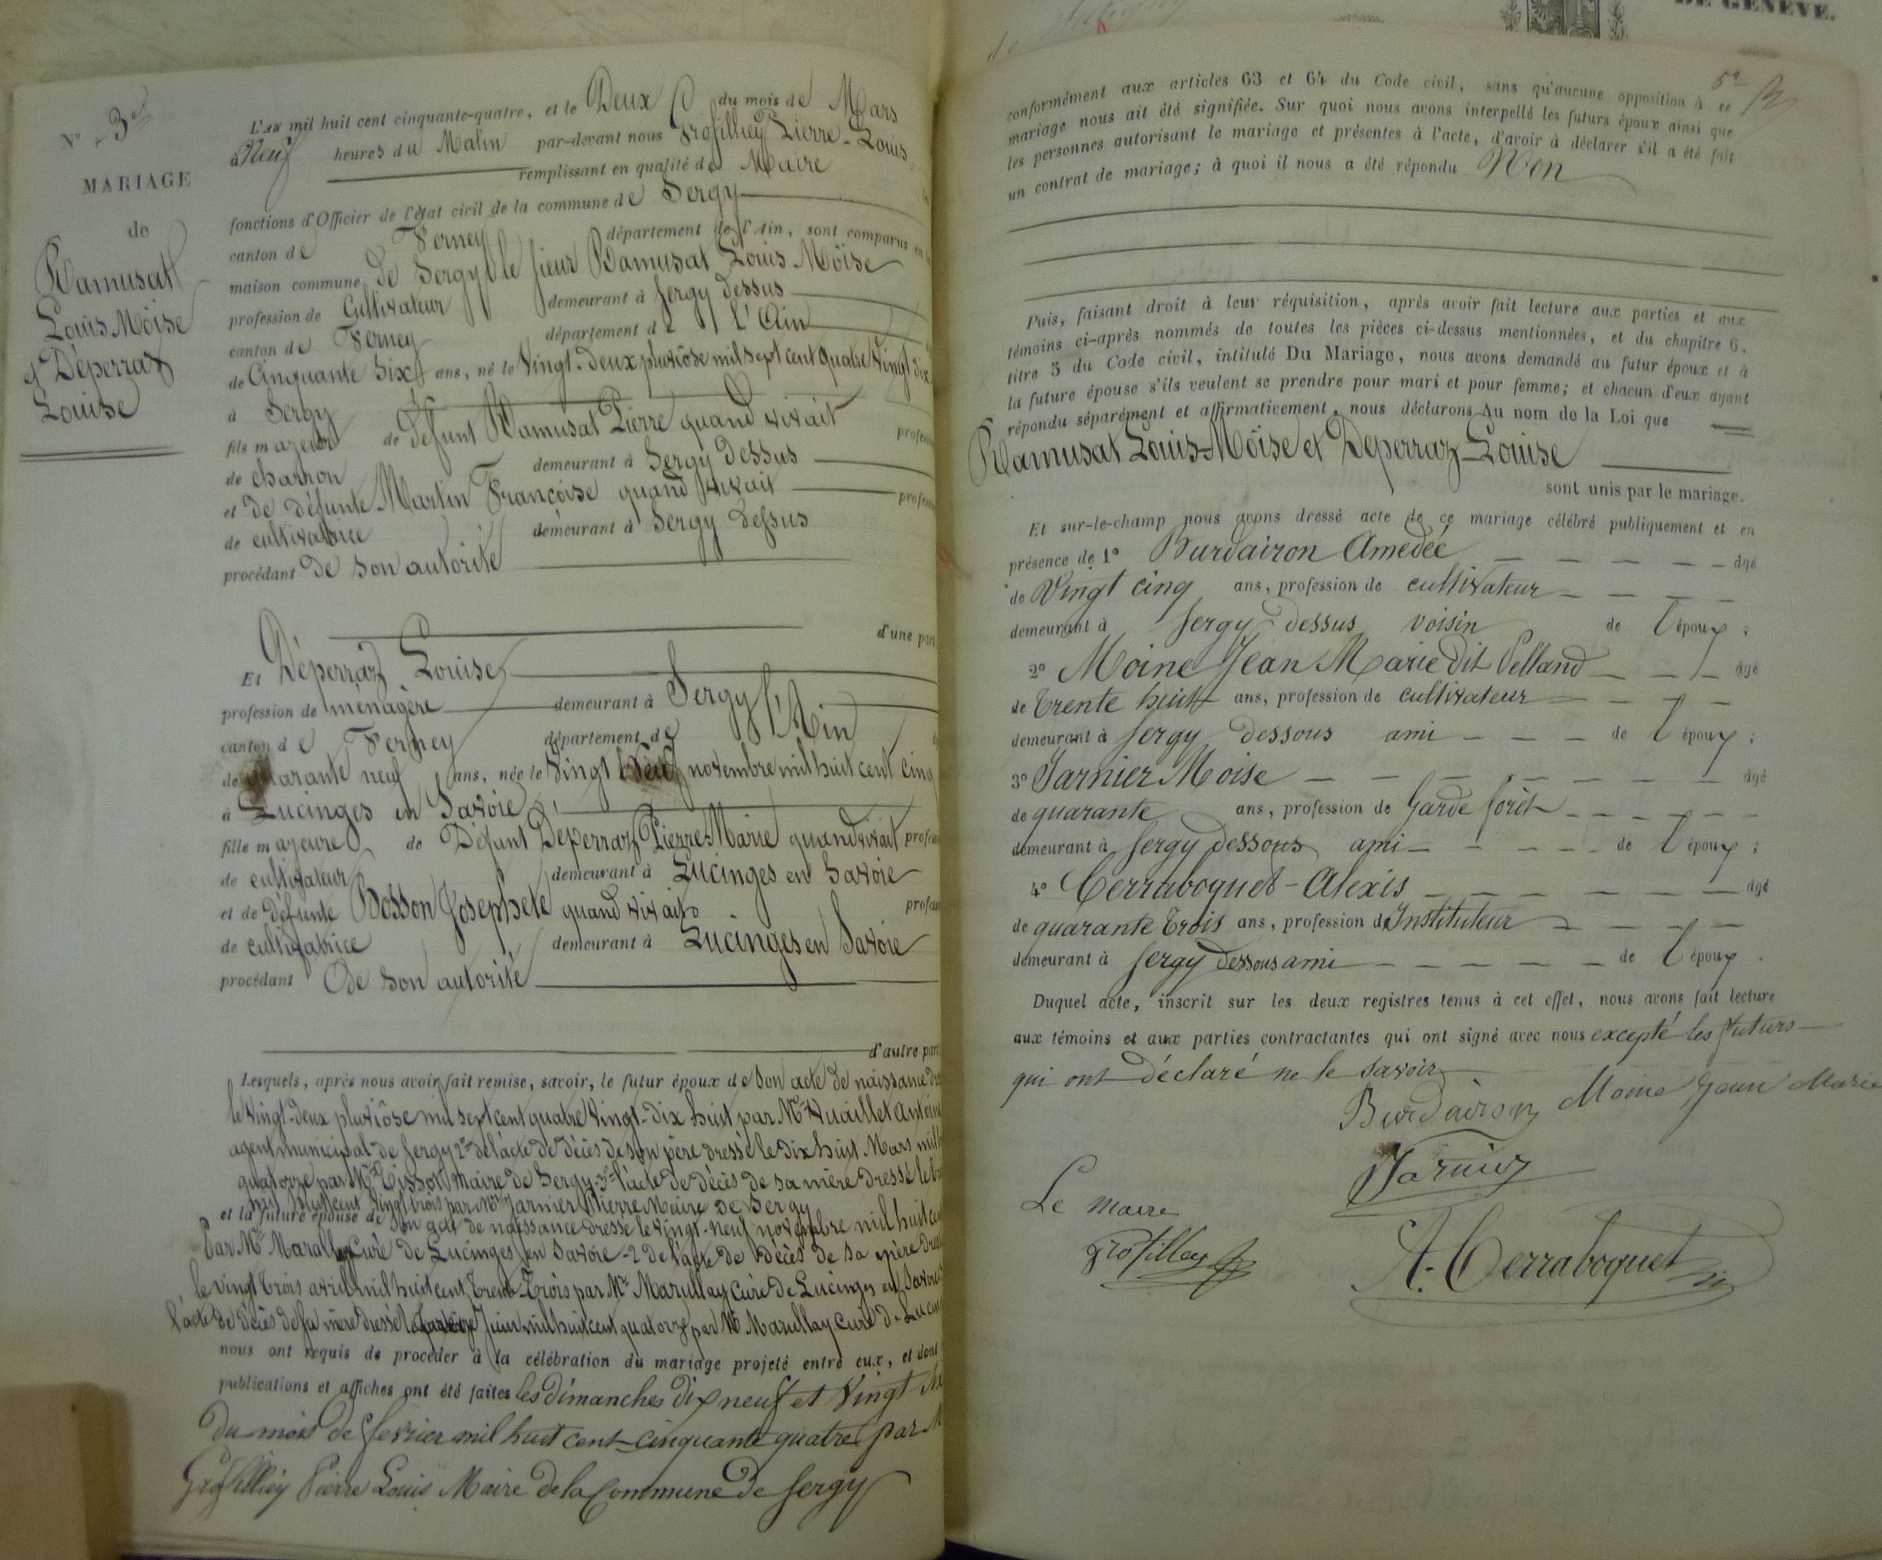 N° 3
MARIAGE
de
Ramusat
Louis Moïse
et Déperraz
Louise
L'AN mil huit cent cinquante-quatre, et le Deux du mois de Mars
à Neuf heures du Matin par-devant nous Grosfilley Pierre-Louis
remplissant en qualité de Maire
fonctions d'Officier de l'état civil de la commune de Sergy
canton de Ferney département de l'Ain, sont comparus en la
maison commune de Sergy le sieur Ramusat Louis Moïse
profession de Cultivateur demeurant à Sergy dessus
canton de Ferney département de l'Ain
de Cinquante Six ans, né le Vingt-deux pluviôse mil sept cent quatre Vingt dix
à Sergy
fils majeur de défunt Ramusat Pierre quand vivait profession
de charron demeurant à Sergy dessus
et de défunte Martin Françoise quand vivait profession
de cultivatrice demeurant à Sergy dessus
procédant de son autorité
d'une part
Et Déperraz Louise
profession de ménagère demeurant à Sergy
canton de Ferney département de l'Ain
de quarante neuf ans, née le Vingt neuf novembre mil huit cent cinq
à Lucinges en Savoie
fille majeure de Défunt Deperraz Pierre Marie quand vivait profession
de cultivateur demeurant à Lucinges en Savoie
et de défunte Bosson Josephete quand vivait profession
de cultivatrice demeurant à Lucinges en Savoie
procédant De son autorité
d'autre part
Lesquels, après nous avoir fait remise, savoir, le futur époux de son acte de naissance
le vingt-deux pluviôse mil sept cent quatre vingt-dix huit par Mr Vuaillet Antoine
agent municipal de Sergy 2° de l'acte de décès de son père dressé le dix huit Mars mil
quatorze par Mr Tissot Maire de Sergy 3° l'acte de décès de sa mère dressé le
mil huit cent vingt trois par Mr Jarnier Pierre Maire de Sergy
et la future épouse de son acte de naissance dressé le vingt-neuf novembre mil huit cent
Par Mr Marullay Curé de Lucinges en Savoie-2 de l'acte de décès de sa père
le vingt trois avril mil huit cent trente-trois par Mr Marullay Curé de Lucinges en Savoie
l'acte de décès de sa mère dressé le Juin mil huit cent quatorze par Mr Marullay Curé de
nous ont requis de procéder à la célébration du mariage projeté entre eux, et dont
publications et affiches ont été faites les dimanches dix neuf et Vingt
du mois de fevrier mil huit cent cinquante quatre par
Grosfilliey Pierre Louis Maire de la Commune de Sergy
DE GENÈVE.
conformément aux articles 63 et 64 du Code civil, sans qu'aucune opposition à ce
mariage nous ait été signifiée. Sur quoi nous avons interpellé les futurs époux ainsi que
les personnes autorisant le mariage et présentes à l'acte, d'avoir à déclarer s'il a été fait
un contrat de mariage; à quoi il nous a été répondu Non
Puis, faisant droit à leur réquisition, après avoir fait lecture aux parties et aux
témoins ci-après nommés de toutes les pièces ci-dessus mentionnées, et du chapitre 6,
titre 5 du Code civil, intitulé Du Mariage, nous avons demandé au futur époux et à
la future épouse s'ils veulent se prendre pour mari et pour femme; et chacun d'eux ayant
répondu séparément et affirmativement, nous déclarons Au nom de la Loi que
Ramusat Louis-Moïse et Deperraz-Louise
sont unis par le mariage.
Et sur-le-champ nous avons dressé acte de ce mariage célébré publiquement et en
présence de 1° Burdairon Amedée âgé
de Vingt cinq ans, profession de cultivateur
demeurant à Sergy dessus voisin de l'époux;
2° Moine Jean Marie dit Pelland âgé
de Trente huit ans, profession de cultivateur
demeurant à Sergy dessous ami de l'époux;
3° Jarnier Moise âgé
de quarante ans, profession de Garde forêt
demeurant à Sergy dessous ami de l'époux;
4° Cerraboquet-Alexis âgé
de quarante trois ans, profession de Instituteur
demeurant à Sergy dessous ami de l'époux.
Duquel acte, inscrit sur les deux registres tenus à cet effet, nous avons fait lecture
aux témoins et aux parties contractantes qui ont signé avec nous excepté les futurs
qui ont déclaré ne le savoir
Burdairon Moine Jean Marie
Jarnier
Le maire
Grosfilley
A. Cerraboquet